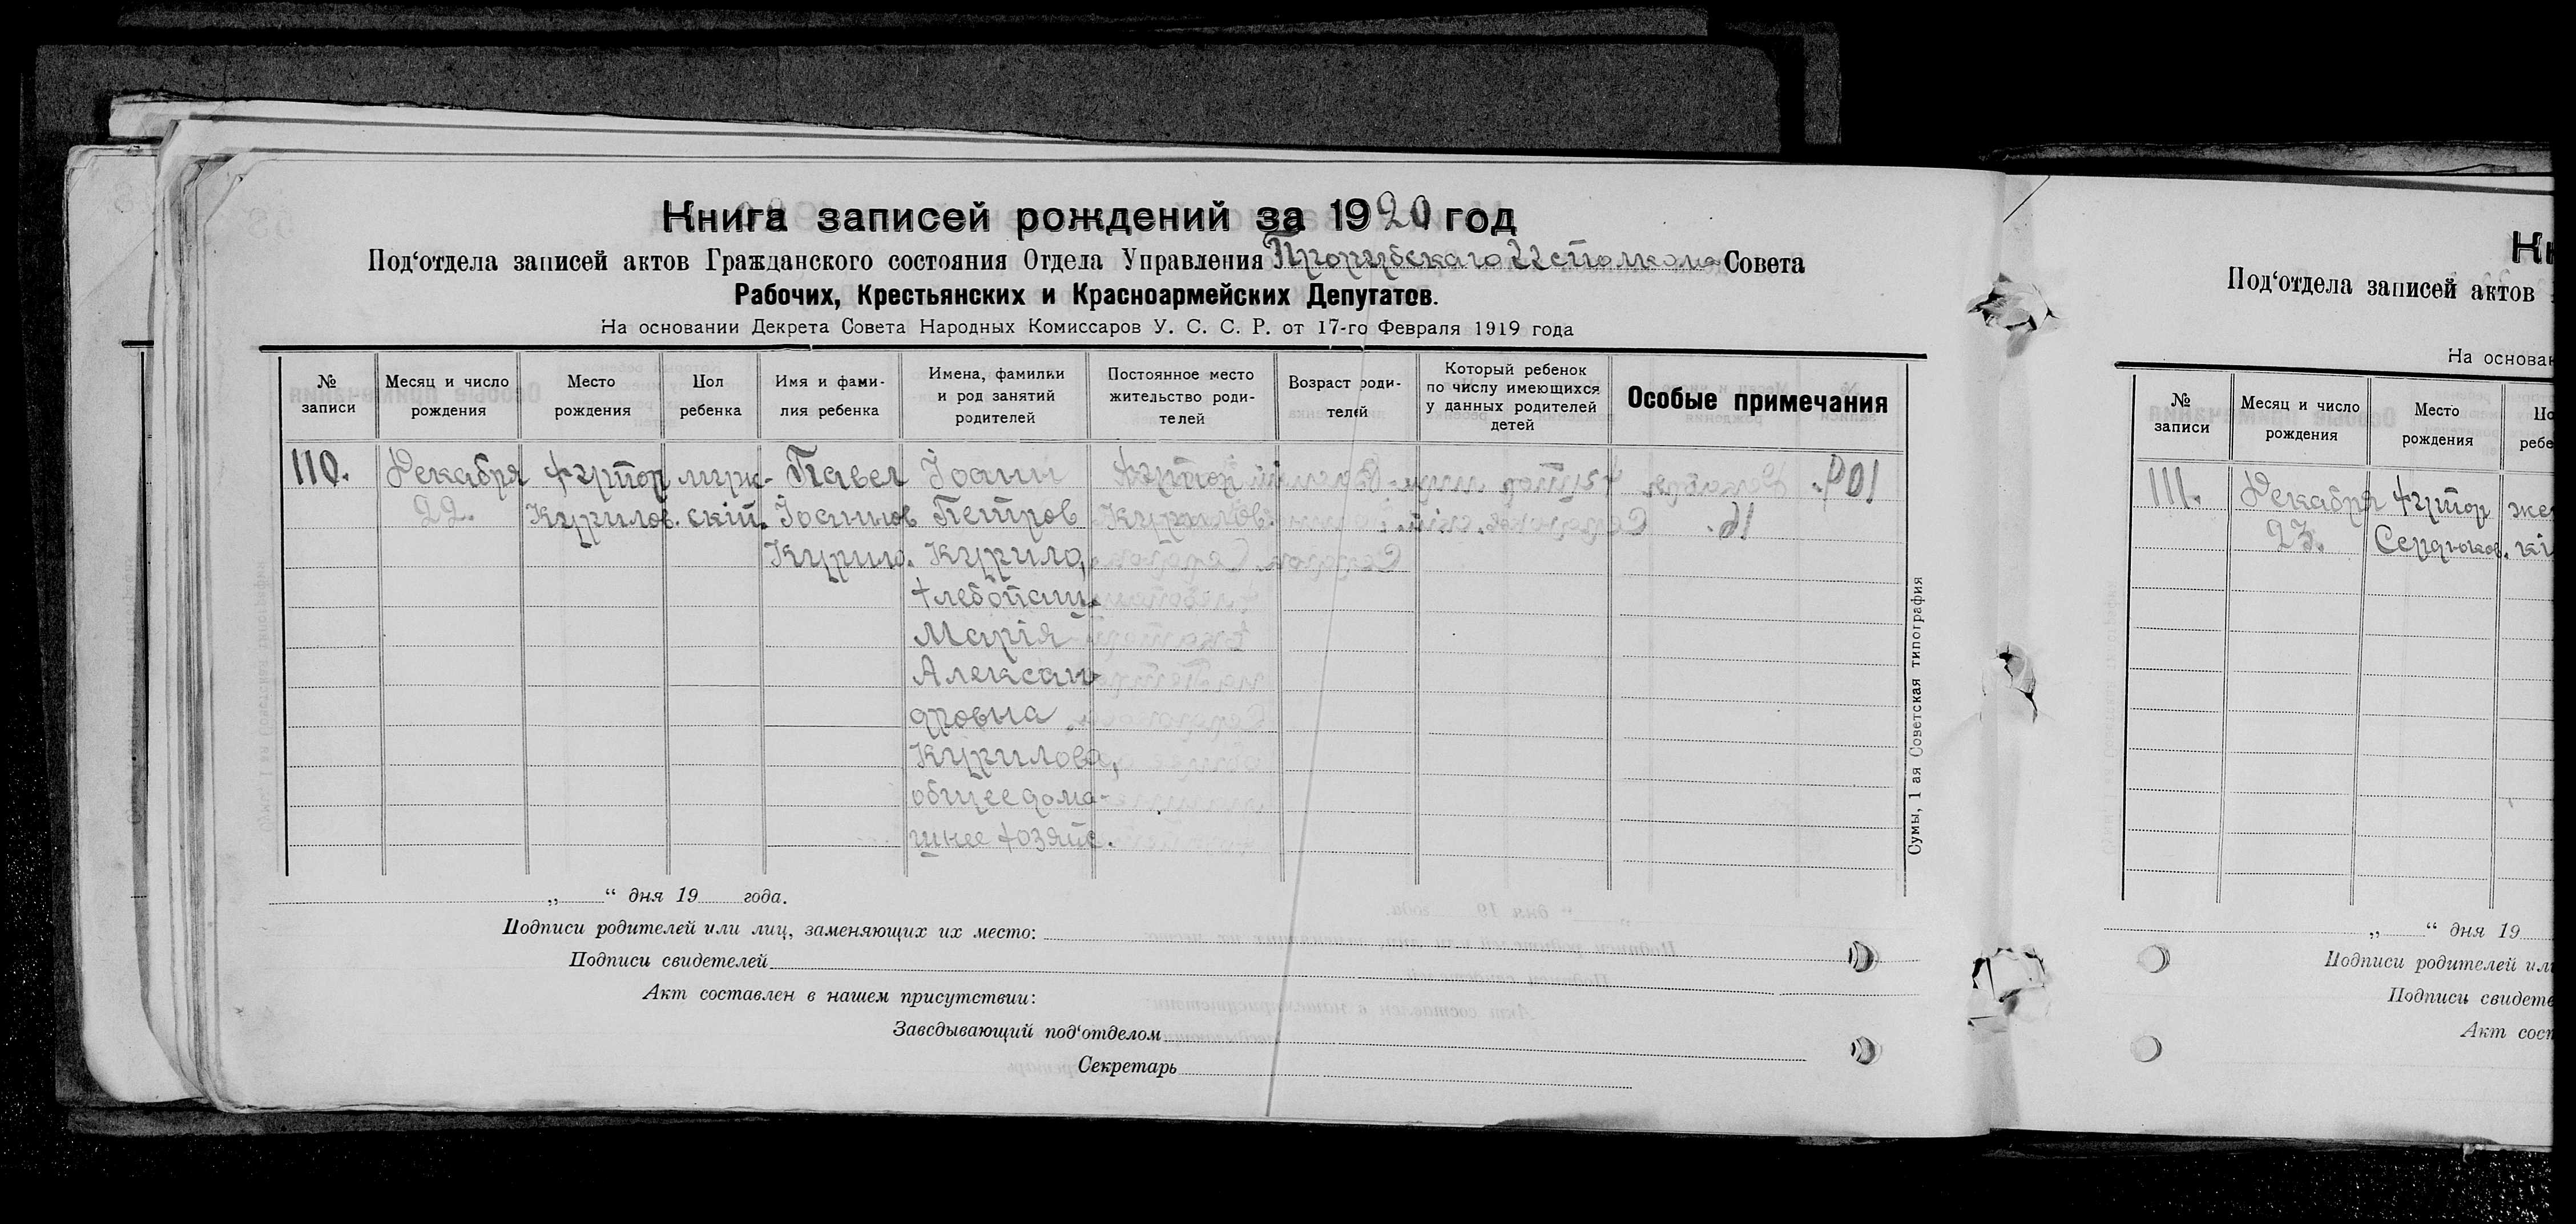 Книга записей рождений за 1920 год
Под‘отдела записей актов Гражданского состояния Отдела Управления Исполкома Совета
Рабочих, Крестьянских и Красноармейских Депутатов.
На основании Декрета Совета Народных Комиссаров У. С. С. Р. от 17-го Февраля 1919 года
№ записи
Месяц и число рождения
Место рождения
Пол ребенка
Имя и фами-
лия ребенка
Имена, фамилии
и род занятий
родителей
Постоянное место
жительство роди-
телей
Возраст роди-
телей
Который ребенок
по числу имеющихся
у данных родителей
детей
Особые примечания
110.
Декабря
22.
Хутор
Курилов.
муж-
ский.
Павел
Іоаннов
Курило.
Іоанн
Петров
Курило,
хлебопаш.
Марія
Алексан-
дровна
Курилова,
общее дома-
шнее хозяйс.
Хутор
Курилов.
„ “ дня 19 года.
Подписи родителей или лиц, заменяющих их место:
Подписи свидетелей
Акт составлен в нашем присутствии:
Заведывающий под‘отделом
Секретарь
Сумы, 1 ая Советская типография
Кн
Под‘отдела записей актов
На основан
№ записи
Месяц и число рождения
Место рождения
По
ребе
111.
Декабря
23.
Хутор
Сердюков.
же
кі
„ “ дня 19
Подписи родителей или
Подписи свидете
Акт сост